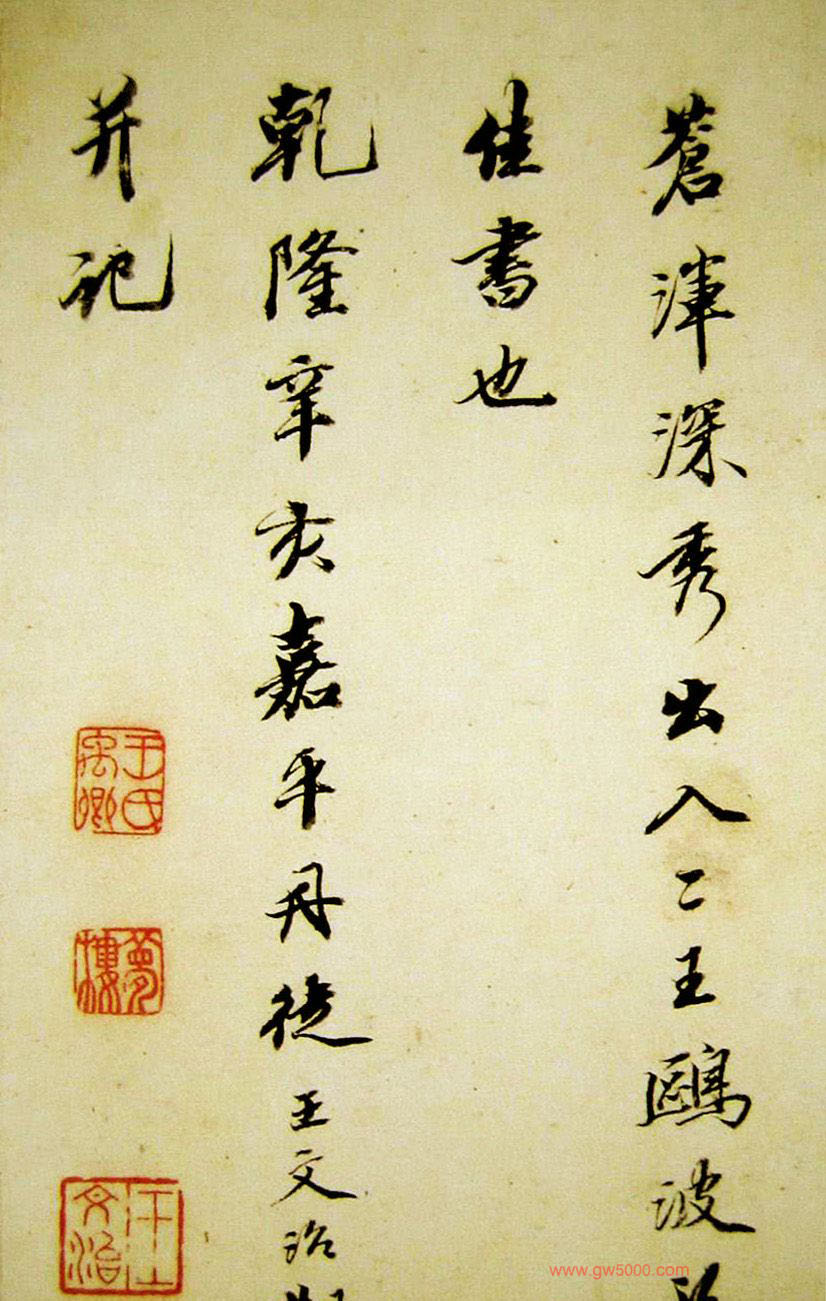 蒼渾深秀出入二王鷗波
佳書也
乾隆辛亥嘉平丹徒王文治
并記
王氏禹卿
夢樓
文治
www.gw5000.com